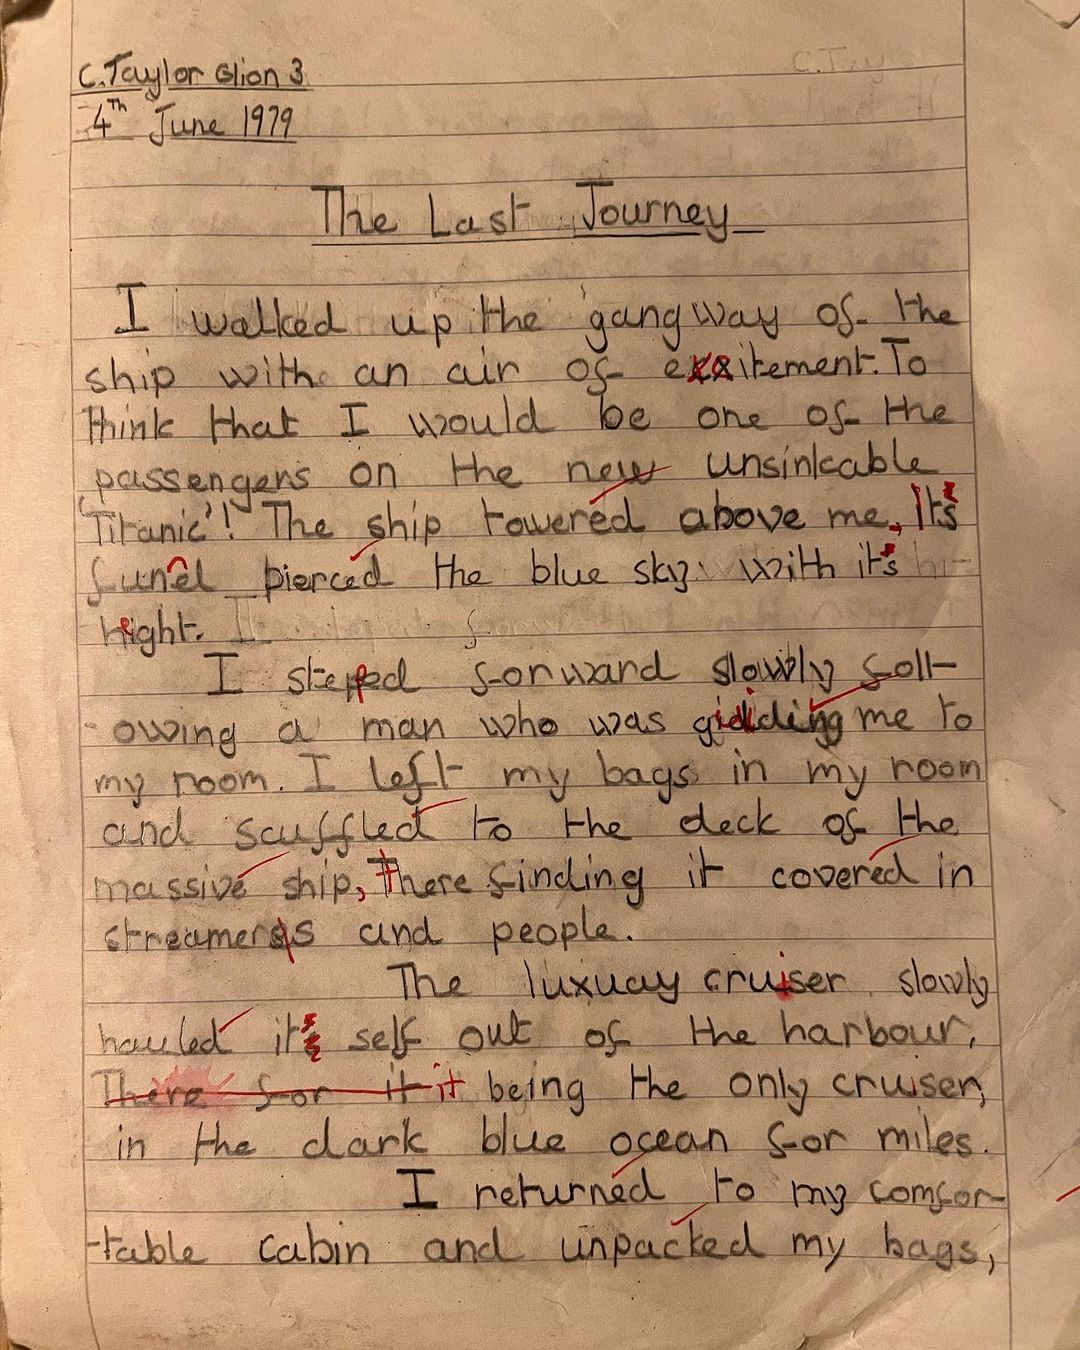 C. Taylor Glion 3
4th June 1979
The Last Journey
I walked up the gangway of the
ship with an air of exitement. To
think that I would be one of the
passengers on the new unsinkable
'Titanic'! The ship towered above me, It's
funel pierced the blue sky with it's
hight.
I stepped forward slowly foll-
owing a man who was giding me to
my room. I left my bags in my room
and scuffled to the deck of the
massive ship, there finding it covered in
streamers and people.
The luxuay cruiser slowly
hauled it's self out of the harbour,
There for it it being the only cruiser,
in the dark blue ocean for miles.
I returned to my comfor-
-table cabin and unpacked my bags,